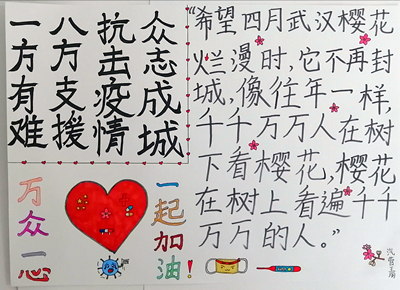 一方有难
八方支援
抗击疫情
众志成城
“希望四月武汉樱花
烂漫时,它不再封
城,像往年一样,
千千万万人在树
下看樱花,樱花
在树上看遍千千
万万的人。”
万众一心
一起加油!